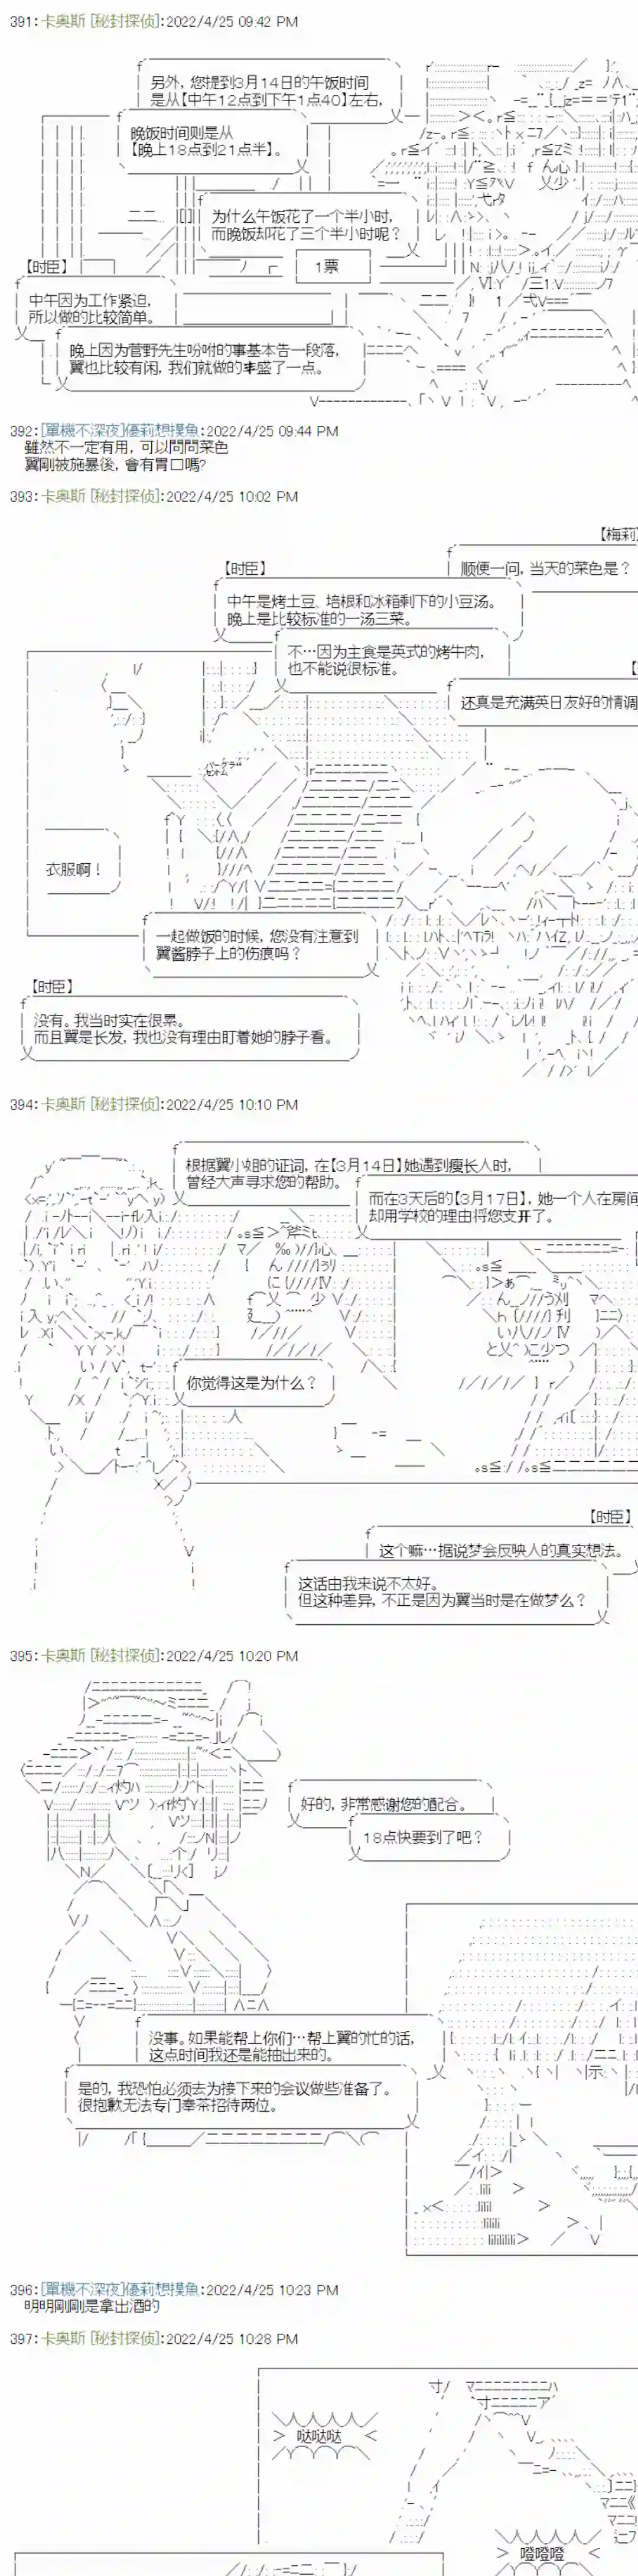 391:卡奥斯 [秘封探侦]:2022/4/25 09:42 PM
另外, 您提到3月14日的午饭时间
是从【中午12点到下午1点40】左右,
晚饭时间则是从
【晚上18点到21点半】。
为什么午饭花了一个半小时,
而晚饭却花了三个半小时呢?
1票
【时臣】
中午因为工作紧迫,
所以做的比较简单。
晚上因为菅野先生吩咐的事基本告一段落,
翼也比较有闲, 我们就做的丰盛了一点。
392:[單機不深夜]優莉想摸魚:2022/4/25 09:44 PM
雖然不一定有用, 可以問問菜色
翼剛被施暴後, 會有胃口嗎?
393:卡奥斯 [秘封探侦]:2022/4/25 10:02 PM
【梅莉】
顺便一问, 当天的菜色是?
【时臣】
中午是烤土豆、培根和冰箱剩下的小豆汤。
晚上是比较标准的一汤三菜。
不…因为主食是英式的烤牛肉,
也不能说很标准。
还真是充满英日友好的情调
衣服啊!
一起做饭的时候, 您没有注意到
翼酱脖子上的伤痕吗?
【时臣】
没有。我当时实在很累。
而且翼是长发, 我也没有理由盯着她的脖子看。
394:卡奥斯 [秘封探侦]:2022/4/25 10:10 PM
根据翼小姐的证词, 在【3月14日】她遇到瘦长人时,
曾经大声寻求您的帮助。
而在3天后的【3月17日】, 她一个人在房间
却用学校的理由将您支开了。
你觉得这是为什么?
【时臣】
这个嘛…据说梦会反映人的真实想法。
这话由我来说不太好。
但这种差异, 不正是因为翼当时是在做梦么?
395:卡奥斯 [秘封探侦]:2022/4/25 10:20 PM
好的, 非常感谢您的配合。
18点快要到了吧?
没事。如果能帮上你们…帮上翼的忙的话,
这点时间我还是能抽出来的。
是的, 我恐怕必须去为接下来的会议做些准备了。
很抱歉无法专门奉茶招待两位。
396:[單機不深夜]優莉想摸魚:2022/4/25 10:23 PM
明明剛剛是拿出酒的
397:卡奥斯 [秘封探侦]:2022/4/25 10:28 PM
哒哒哒
噔噔噔